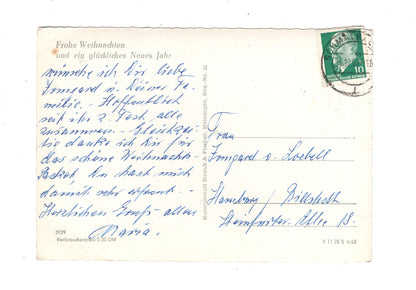 Frohe Weihnachten
und ein glückliches Neues Jahr
wünsche ich Dir liebe
Irmgard u. Deiner Fa-
milie. - Hoffentlich
seid ihr z. Fest alle
zusammen. - Gleichzei-
tig danke ich Dir für
das schöne Weihnachts-
Paket. Du hast mich
damit sehr erfreut. -
Herzlichen Gruß allen
Maria.
Verbraucherpreis 0,20 DM
Kunstanstalt Straub & Fischer, Meiningen,
10
Frau
Irmgard v. Loebell
Hamburg / Billstedt
Allee 18.
V 11 28